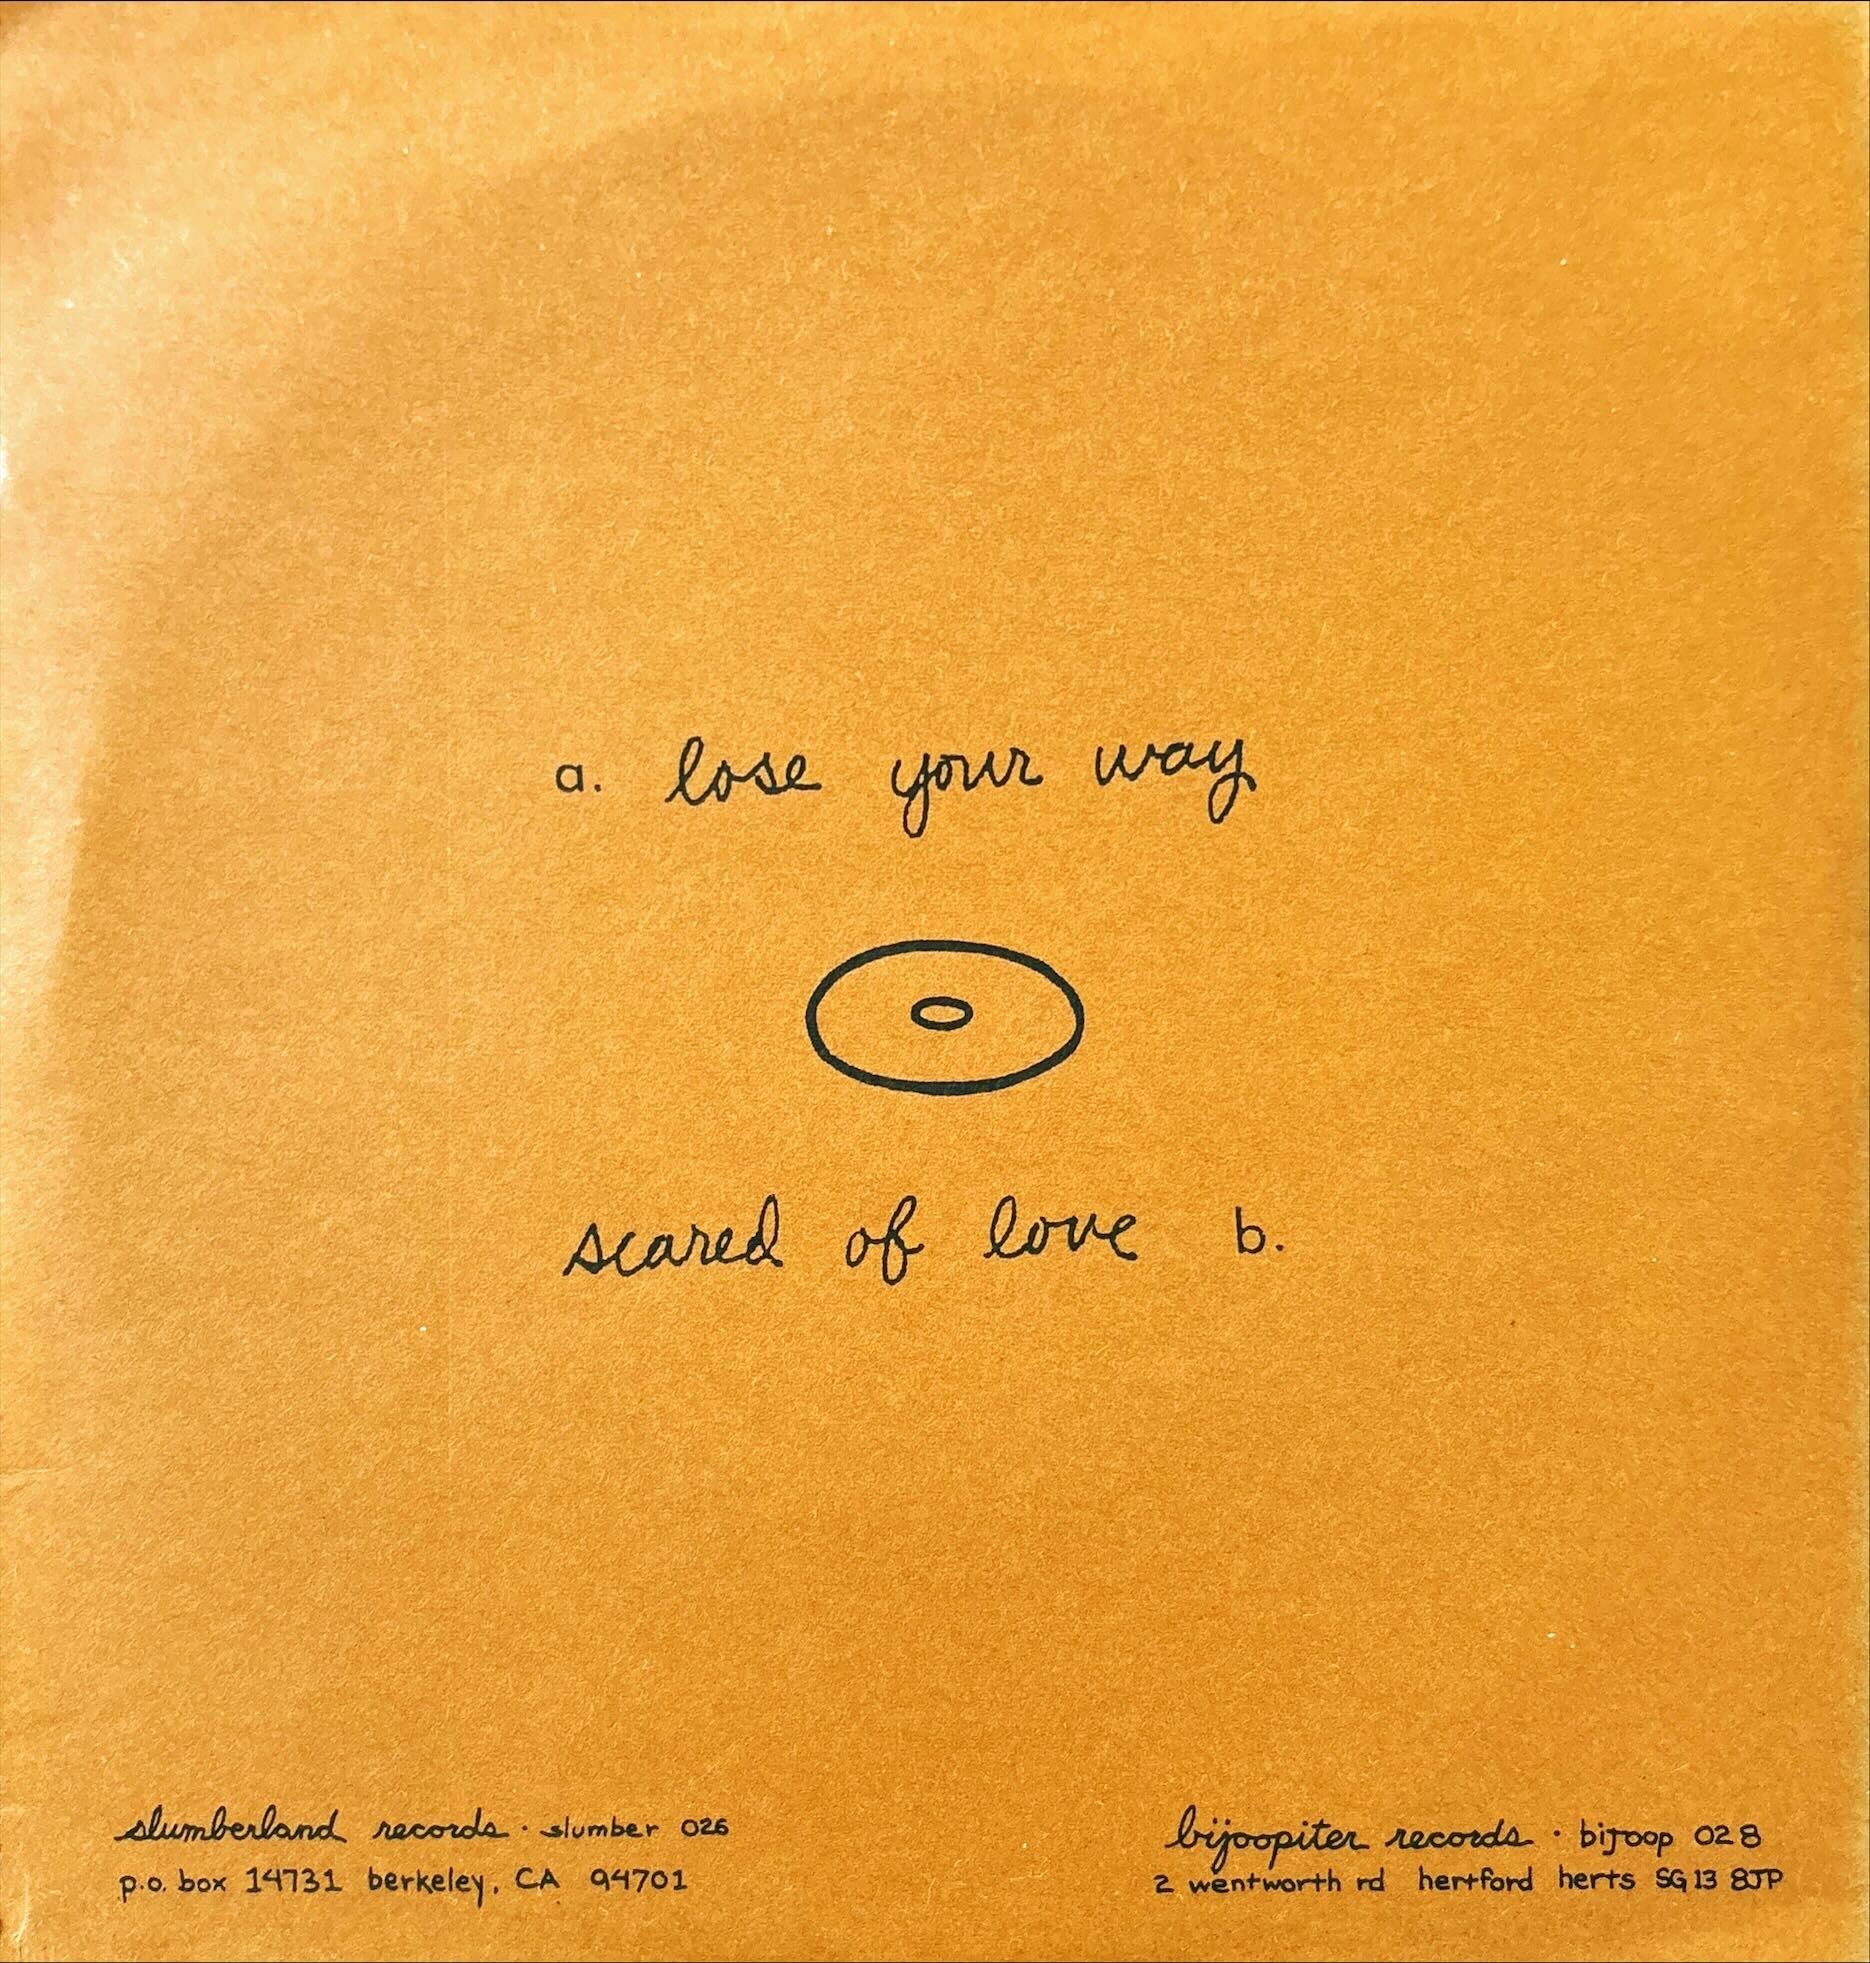 a. lose your way
scared of love b.
slumberland records · slumber 026
p.o. box 14731 berkeley, CA 94701
bijoopiter records · bijoop 028
2 wentworth rd hertford herts SG13 8JP